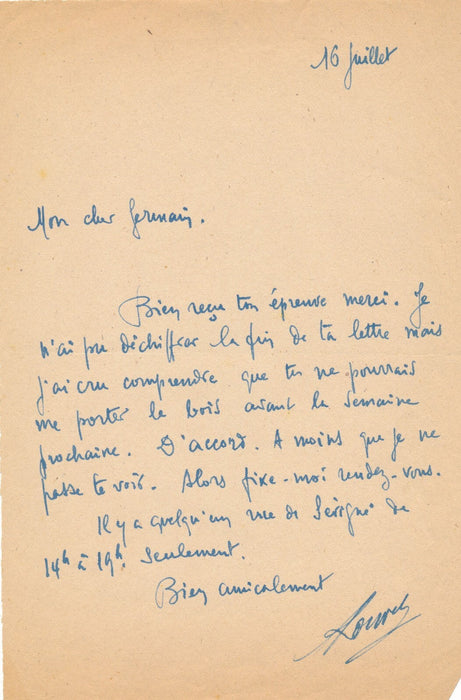 16 Juillet
Mon cher Germain.
Bien reçu ton épreuve merci. Je
n'ai pu déchiffrer la fin de ta lettre mais
j'ai cru comprendre que tu ne pourrais
me porter le bois avant la semaine
prochaine. D'accord. A moins que je ne
passe te voir. Alors fixe-moi rendez-vous.
Il y a quelqu'un rue de Sévigné de
14h à 19h. Seulement.
Bien amicalement